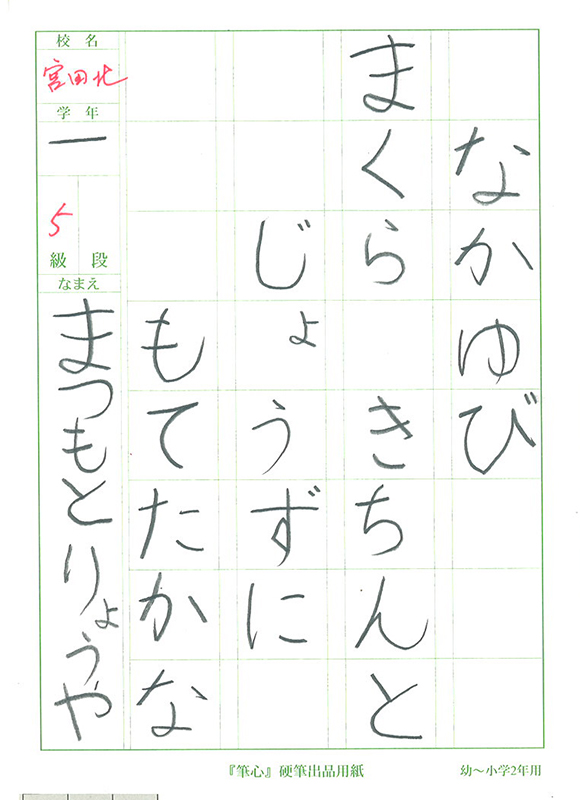 なかゆび
まくら きちんと
じょうずに
もてたかな
校名
宮田北
学年
一
5
級 段
なまえ
まつもとりょうや
『筆心』硬筆出品用紙 幼〜小学2年用